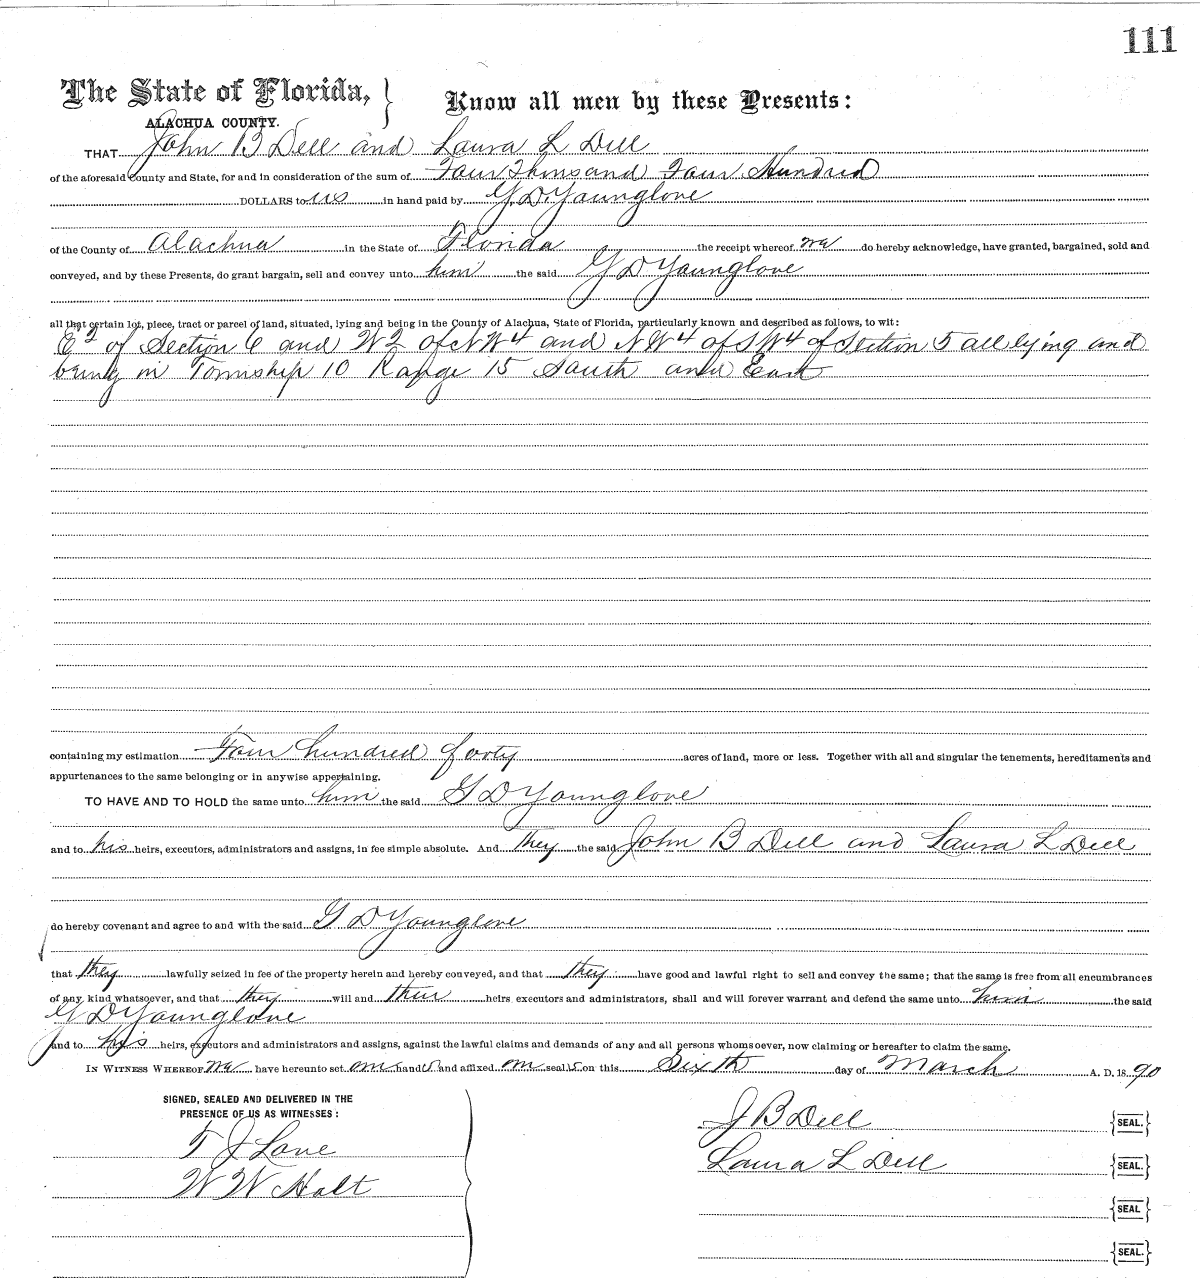 111
The State of Florida, } Know all men by these Presents:
ALACHUA COUNTY.
THAT John B Dell and Laura L Dell
of the aforesaid County and State, for and in consideration of the sum of Four Thousand Four Hundred
DOLLARS to us in hand paid by G. D. Younglove
of the County of Alachua in the State of Florida the receipt whereof we do hereby acknowledge, have granted, bargained, sold and
conveyed, and by these Presents, do grant bargain, sell and convey unto him the said G D Younglove
all that certain lot, piece, tract or parcel of land, situated, lying and being in the County of Alachua, State of Florida, particularly known and described as follows, to wit:
E 2 of Section 6 and W 2 of NW 4 and NW 4 of SW 4 of Section 5 all lying and
being in Township 10 Range 15 South and East
containing my estimation Four hundred forty acres of land, more or less. Together with all and singular the tenements, hereditaments and
appurtenances to the same belonging or in anywise appertaining.
TO HAVE AND TO HOLD the same unto him the said G D Younglove
and to his heirs, executors, administrators and assigns, in fee simple absolute. And they the said John B Dell and Laura L Dell
do hereby covenant and agree to and with the said G D Younglove
that they lawfully seized in fee of the property herein and hereby conveyed, and that they have good and lawful right to sell and convey the same; that the same is free from all encumbrances
of any kind whatsoever, and that they will and their heirs executors and administrators, shall and will forever warrant and defend the same unto him the said
G D Younglove
and to his heirs, executors and administrators and assigns, against the lawful claims and demands of any and all persons whomsoever, now claiming or hereafter to claim the same.
IN WITNESS WHEREOF we have hereunto set our hands and affixed our seals on this Sixth day of March A. D. 1890
SIGNED, SEALED AND DELIVERED IN THE
PRESENCE OF US AS WITNESSES:
J B Dell {SEAL.}
T J Lane
Laura L Dell {SEAL.}
W W Holt
{SEAL}
{SEAL.}